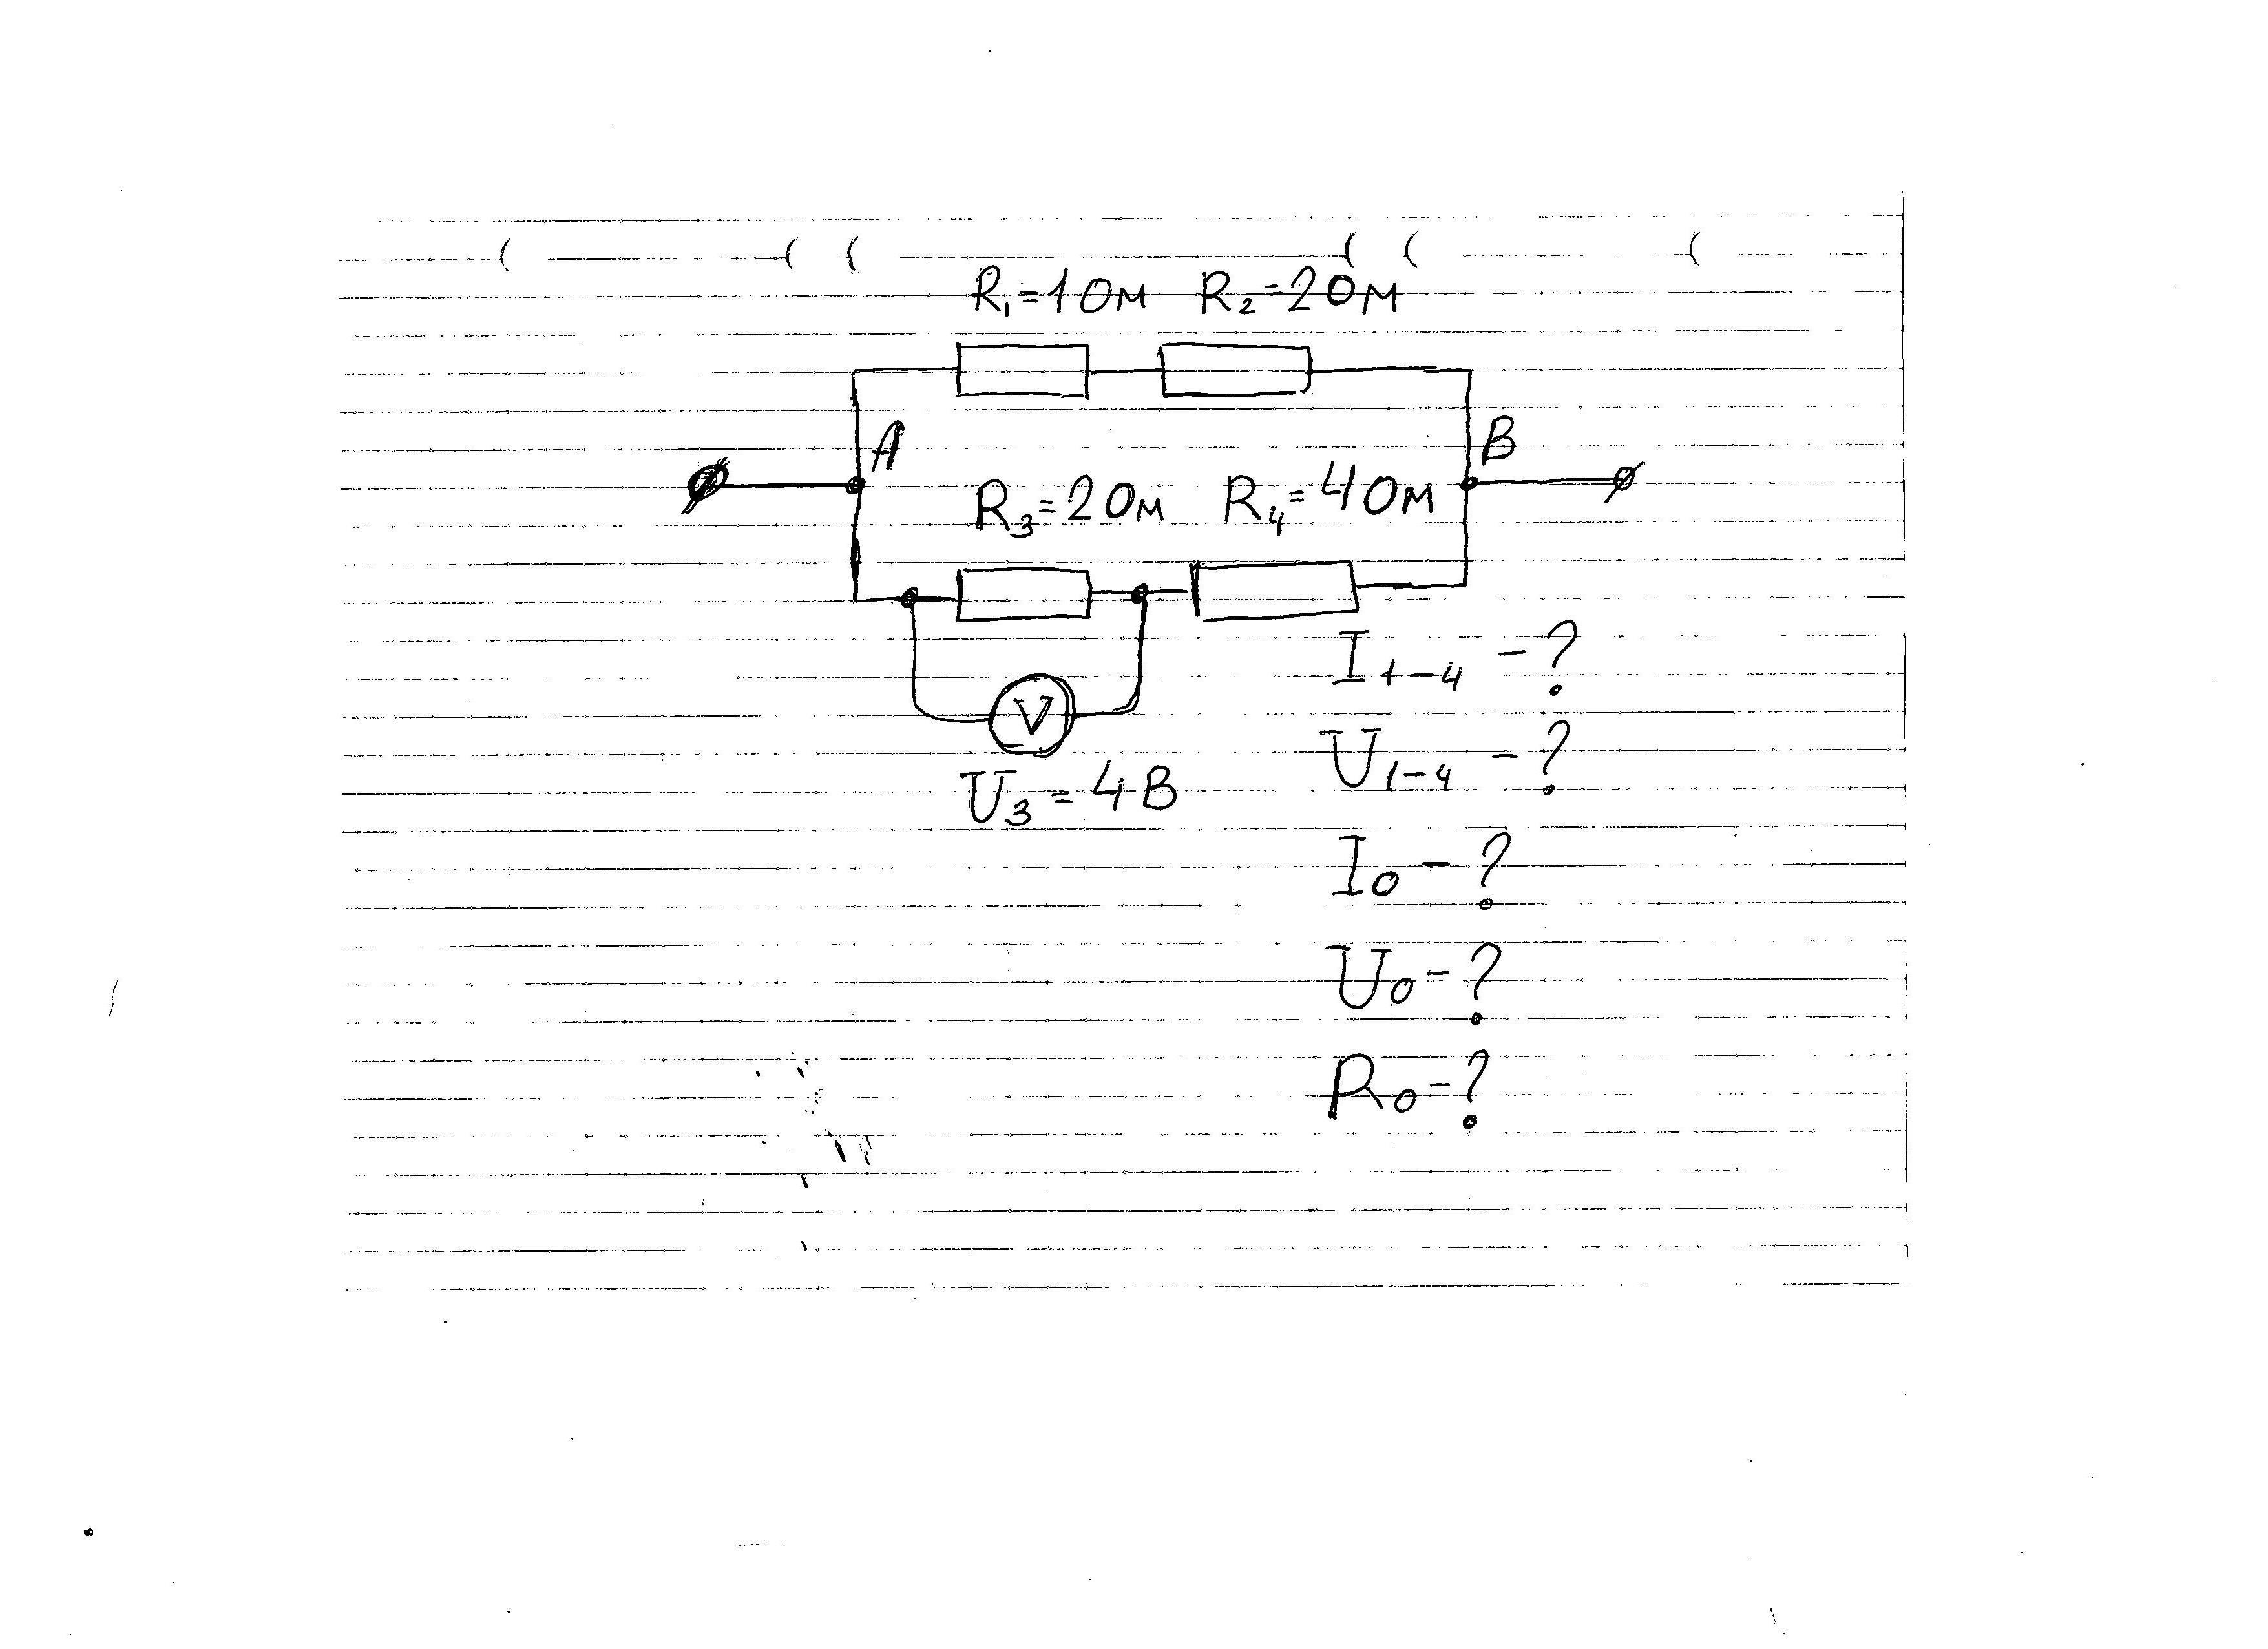 R₁=1 Ом R₂=2 Ом
A B
R₃=2 Ом R₄=4 Ом
V
U₃=4 В
I₁₋₄ - ?
U₁₋₄ - ?
I₀ - ?
U₀ - ?
R₀ - ?